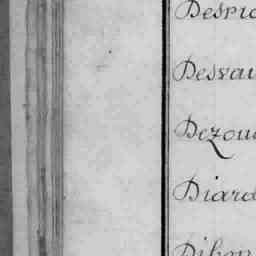 Despr
Desvau
Dezou
Diard
Dibon